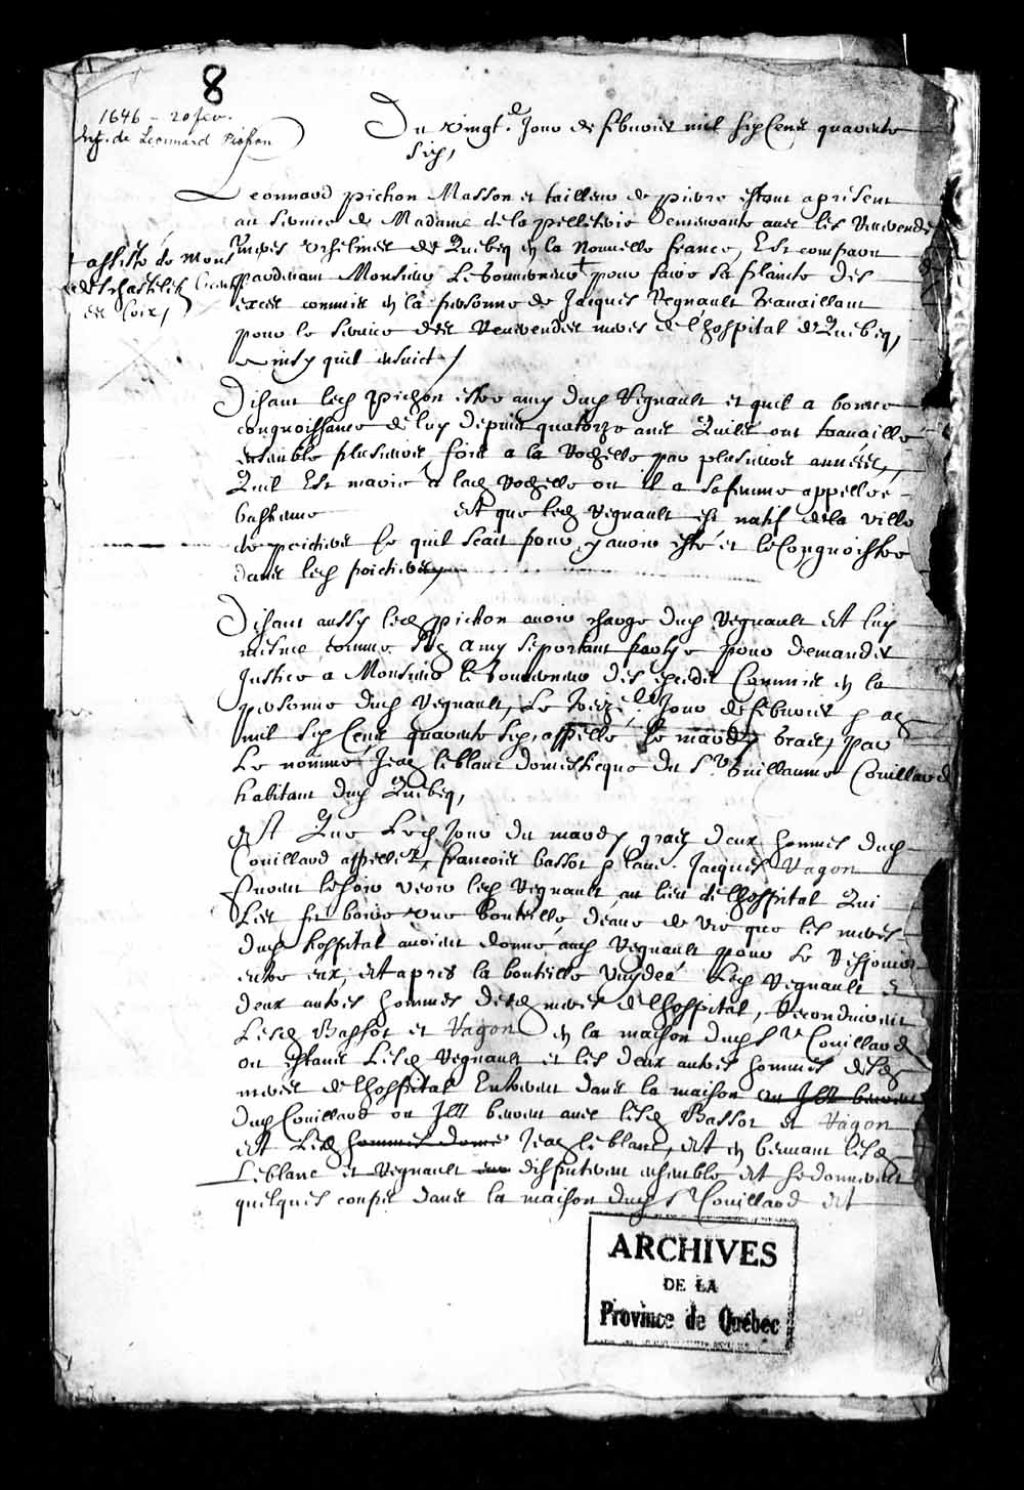 8
1646 - 20 fev.
de Leonnard Pichon
Du vingt.e Jour de febvrier mil six Cens quarente
six,
Leonnard pichon Masson et tailleur de pierre estant apresent
au service de Madame de la pelleterie demeurante avec les Reverendes
meres Urselines de Quebeq en la Nouvelle france, Est comparu
+ assisté de Mons
de Chastelets
des Croix/
pardevant Monsieur Le Gouverneur + pour faire sa plainte des
exces commis en la personne de Jacques Regnault travaillant
pour le service des Reverendes meres de l'hospital de Quebeq,
ainsy quil ensuict /
Disant led Pichon estre amy dud Regnault et quil a bonne
congnoissance de luy depuis quatorze ans Quilz ont travaillé
ensemble plusieurs fois a la Rochelle par plusieurs années,
Quil Est marié a lad Rochelle ou il a sa femme appellee
bastienne Et que led Regnault est natif de la ville
de poictiers Ce quil scait pour y avoir esté et le Congnoistre
dans led poictiers
Disant aussy led pichon avoir charge dud Regnault Et luy
mesme comme son amy se portant partye pour demander
Justice a Monsieur le Gouverneur des excedz Commis en la
personne dud Regnault, Le treizie Jour de febvrier
mil six Cens quarente six, appellé le mardy gras, par
Le nommé Jean leblanc domesticque du Sr Guillaume Couillard
habitant dud Quebeq,
Et Que Led Jour du mardy gras deux hommes dud
Couillard appellez, francois bassot Jacques Vagon
furent le soir veoir led Regnault au lieu de lhospital Qui
Les fit boire une bouteille deaue de vie que les meres
dud hospital avoient donné aud Regnault pour se Resjouir
entre eux, Et apres la bouteille vuydée Led Regnault et
deux autres hommes desd meres de lhospital, Reconduirent
Lesd Bassot et Vagon en la maison dud Sr Couillard
ou estans Lesd Regnault et les deux autres hommes desd
meres de lhospital Entrerent dans la maison ou Ilz beurent
dud Couillard ou Ilz beurent avec lesd Bassot et Vagon
Et Led Jean leblanc, Et en beuvant lesd
Leblanc et Regnault disputerent ensemble Et se donnerent
quelques coups dans la maison dud Sr Couillard Et
ARCHIVES
DE LA
Province de Québec